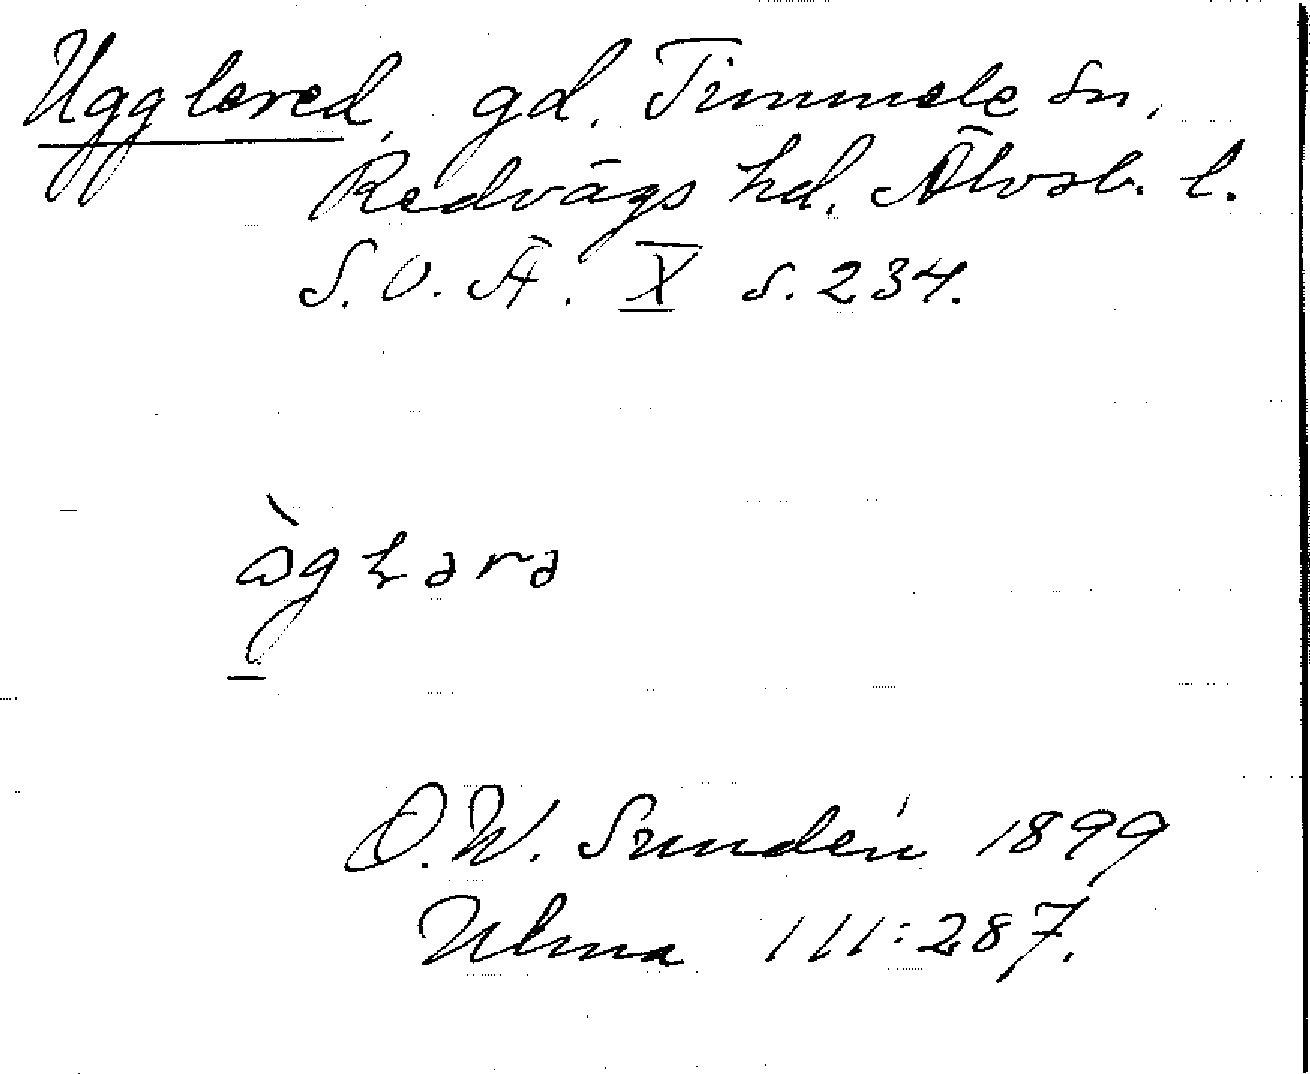 Ugglered, gd. Timmele sn,
Redvägs hd. Älvsb. l.
S. O. Ä. X s. 234.
O. W. Sundén 1899
Ulma 111:287.